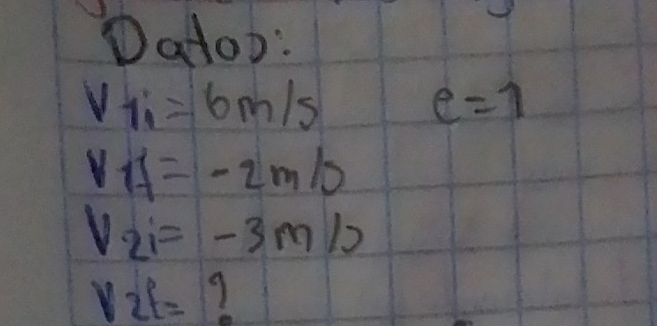 Datos:
V1i = 6m/s e=1
V1f = -2m/s
V2i = -3m/s
V2f = ?